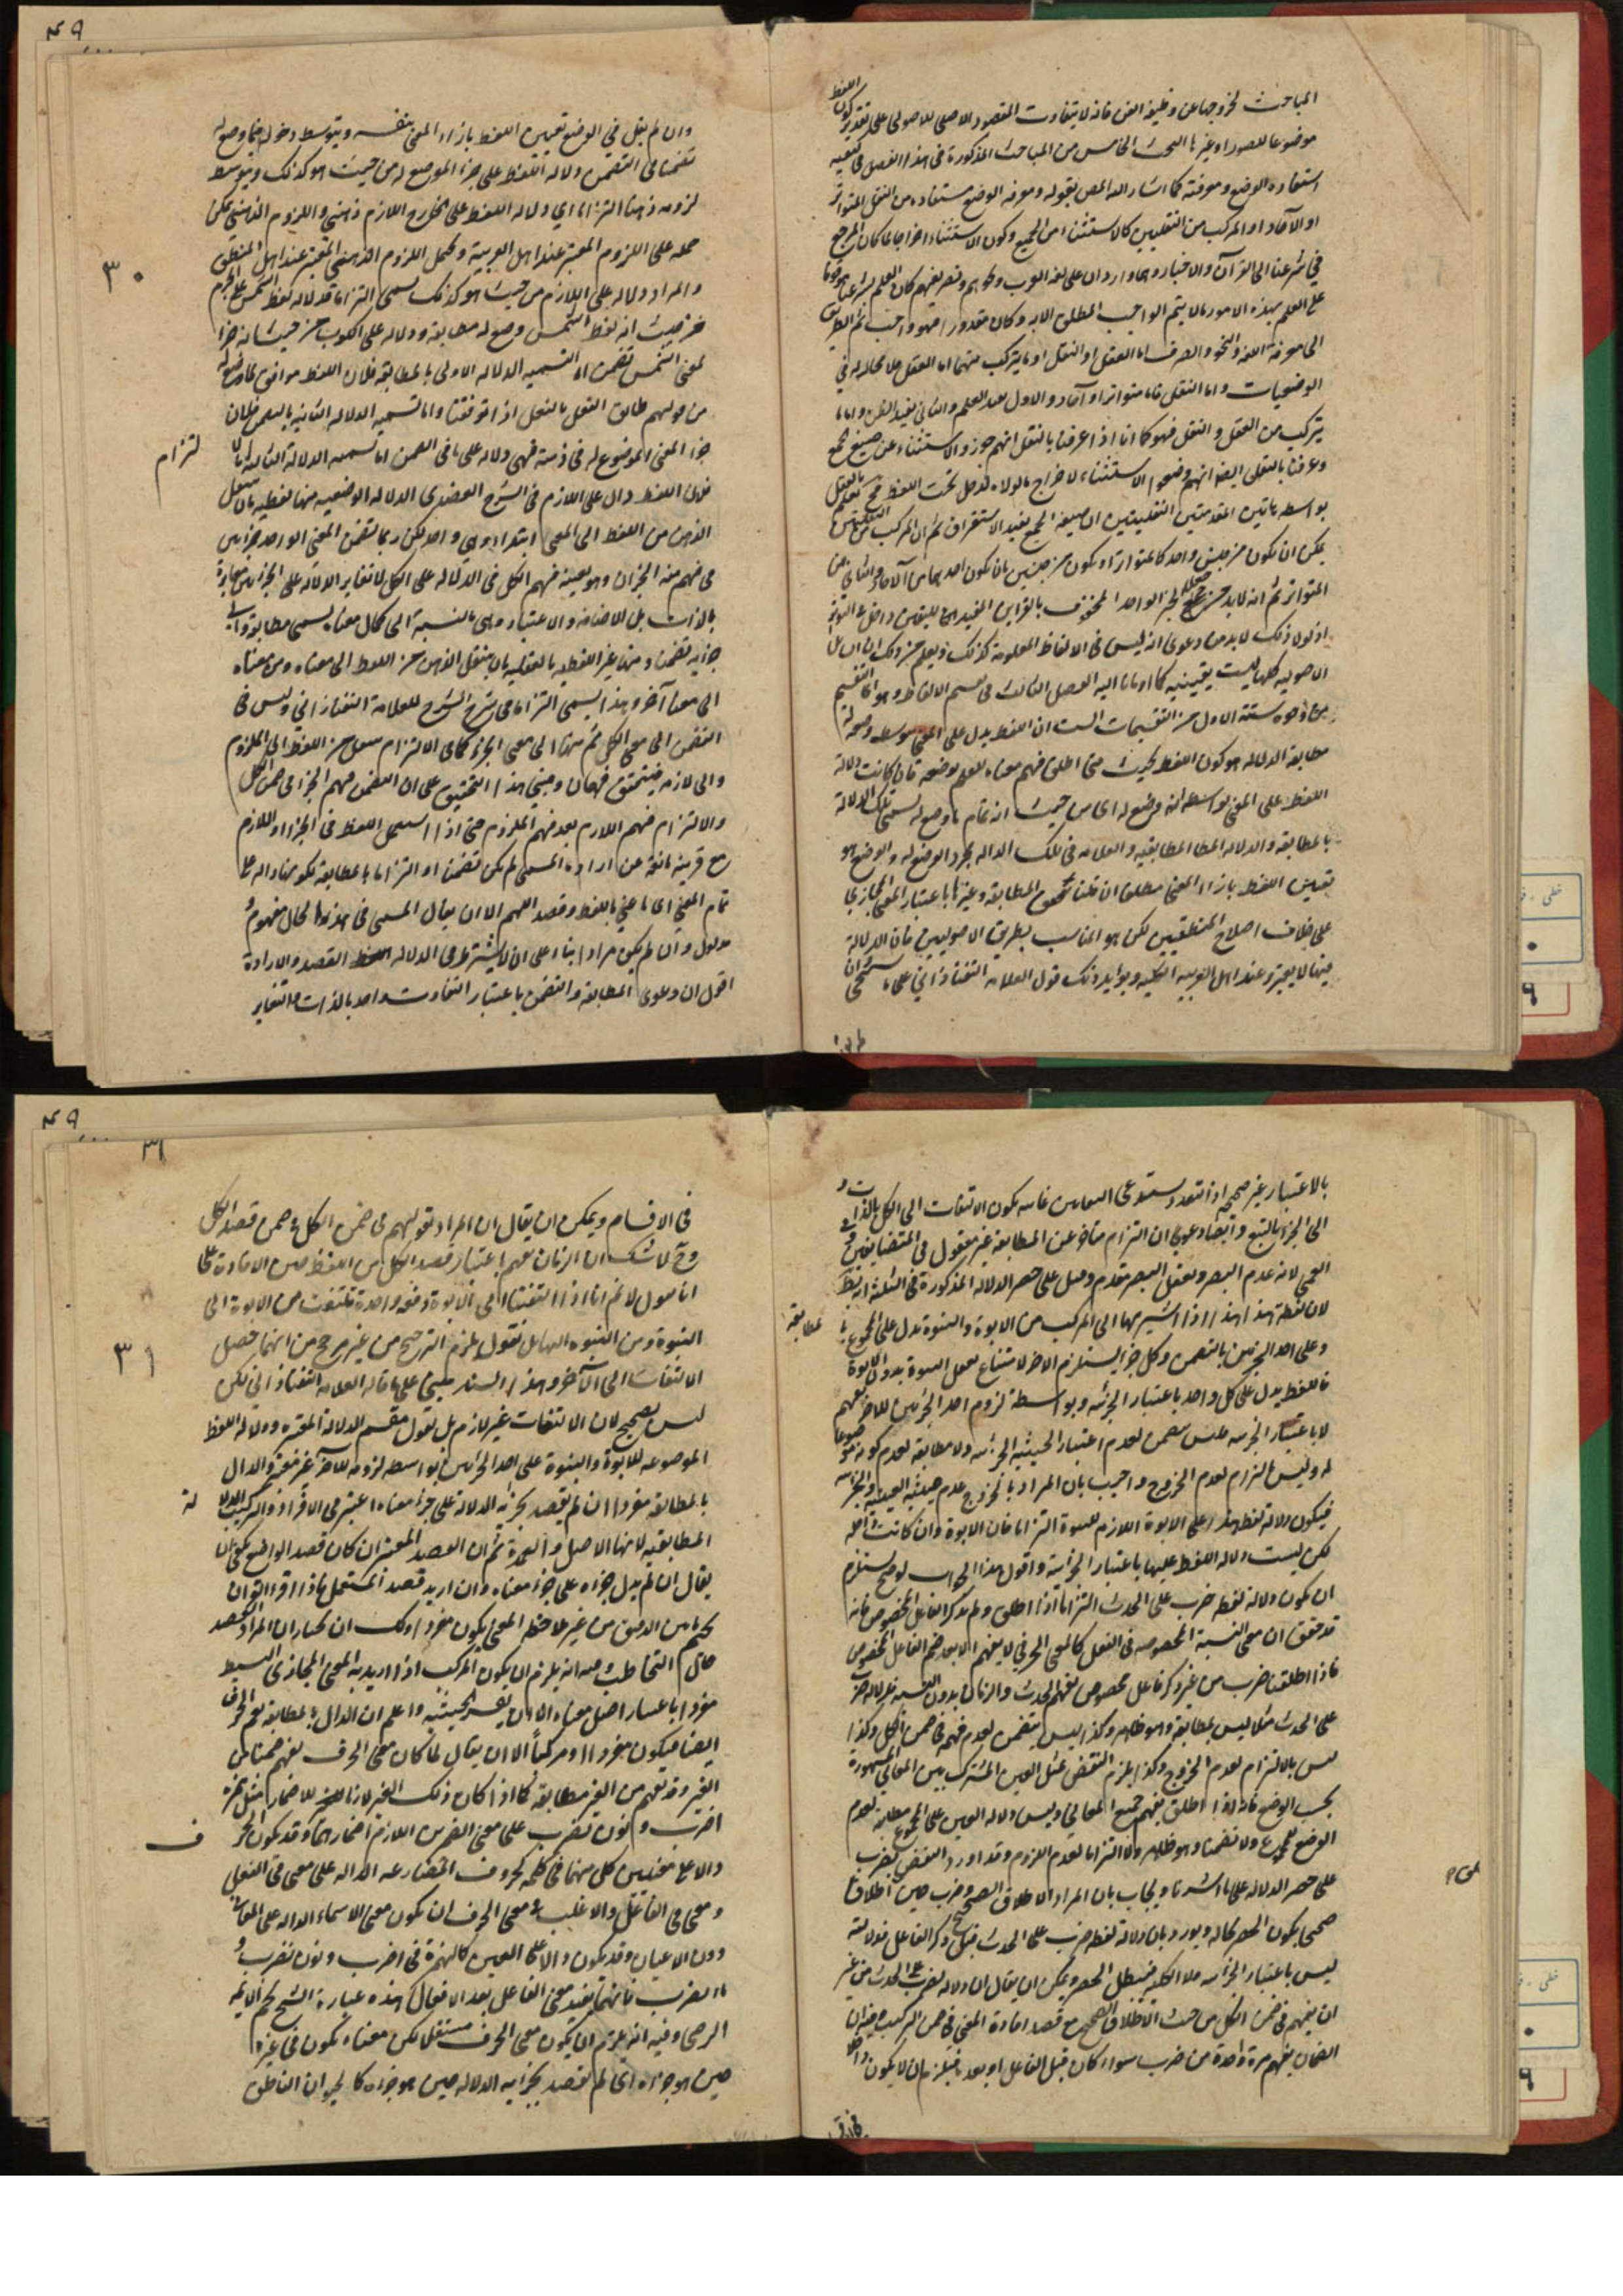 المباحث لخروجها عن وظيفة الفن فانه لا يتفاوت المقصود الاصلي للاصولي على تقدير كون اللفظ
موضوعا للصور او غيرها البحث الخامس من المباحث المذكورة في هذا الفصل في كيفية
استفادة الوضع ومعرفته كما اشار اليه المص بقوله ومعرفة الوضع مستفاده من النقل المتواتر
او الآحاد او المركب من النقليين كالاستثناء من الجمع وكون الاستثناء اخراجا لما كان المرجع
في شرعنا الى القرآن والاخبار وهما واردان على لغة العرب ونحوهم وتصريفهم كان العلم بشرعنا موقوفا
على العلم بهذه الامور وما لا يتم الواجب المطلق الا به وكان مقدورا فهو واجب ثم الطريق
الى معرفة اللغة والنحو والصرف اما العقل او النقل او ما يتركب منهما اما العقل فلا مجال له في
الوضعيات واما النقل فاما متواترا او آحاد والاول يفيد العلم والثاني يفيد الظن واما ما
يتركب من العقل والنقل فهو كما انا اذا عرفنا بالنقل انهم جوزوا الاستثناء عن صيغ الجمع
وعرفنا بالنقل ايضا انهم وضعوا الاستثناء لاخراج ما لولاه لدخل تحت اللفظ فح نعلم بالعقل
بواسطه هاتين المقدمتين النقليتين ان صيغة الجمع تفيد الاستغراق ثم ان المركب من النقليتين
يمكن ان يكون من جنس واحد كالمتواتر او يكون من جنسين بان يكون احدهما من الآحاد والثاني من
المتواتر ثم انه لابد من جعل الخبر الواحد المحفوف بالقراين المفيد للتعيين داخل في التواتر
اذ لولا ذلك لابد من دعوى انه ليس في الالفاظ المعلومة كذلك ويعلم من ذلك ان المسائل
الاصولية كلها ليست يقينية كما اومانا اليه الفصل الثالث في تقسيم الالفاظ وهو التقسيم
من وجوه ستة الاول من التقسيمات الست ان اللفظ يدل على المعنى بتوسط وضعه له
مطابقة الدلالة هو كون اللفظ بحيث متى اطلق فهم معناه للعلم بوضعه فان كانت دلالة
اللفظ على المعنى بواسطة انه وضع له اي من حيث انه تمام ما وضع له تسمى تلك الدلالة
بالمطابقة والدلالة المطابقية والعلامة في تلك الدلالة مجرد الوضع له والوضع هو
تعيين اللفظ بازاء المعنى مطلقا ان قلنا بتحقق المطابقة وغيرها باعتبار المعنى المجازي
على خلاف اصلاح المنطقيين لكن هو المناسب بطريق الاصوليين فان الدلالة
عندنا لا يعتبر وعند اهل العربية الكليه ويؤيد ذلك قول العلامة التفتازاني على ما
وان لم يقل في الوضع تعيين اللفظ بازاء المعنى بنفسه وبتوسط دخوله فيما وضع له
تضمنا في التضمن دلالة اللفظ على جزء الموضوع له من حيث هو كذلك وبتوسط
لزومه ذهنا التزاما اي دلالة اللفظ على الخارج اللازم ذهني واللزوم الذهني يمكن
حمله على اللزوم المعتبر عند اهل العربية ويحمل اللزوم الذهني المعتبر عند اهل المنطق
٣٠
والمراد دلالة على اللازم من حيث هو كذلك يسمى التزاما فدلالة لفظ الشمس على الجرم
من حيث انه لفظ الشمس وضع له مطابقة ودلالة على الكوكب من حيث انه جزء
لمعنى الشمس تضمن اما تسمية الدلالة الاولى بالمطابقة فلان اللفظ موافق لما وضع له
من قولهم طابق النعل بالنعل اذا توافقتا واما تسمية الدلالة الثانية بالتضمن فلان
جزء المعنى الموضوع له في ضمنه فهي دلالة على ما في الضمن اما تسمية الدلالة الثالثة بالا
لتزام
فلان اللفظ دال على اللازم في الشرح العضدي الدلالة الوضعية منها لفظية بان ينتقل
الذهن من اللفظ الى المعنى ابتداء وهي واحد لكن ربما تضمن المعنى الواحد جزئين
فيفهم منه الجزئان وهو بعينه فهم الكل في الدلالة على الكل لا تغاير الدلالة على الجزئين مغايرة
بالذات بل بالاضافة والاعتبار وهي بالنسبة الى كمال معناه يسمى مطابقة والى
جزئه تضمنا ومنها غير اللفظية بالعقلية بان ينتقل الذهن من اللفظ الى معناه ومن معناه
الى معنا آخر وهذا يسمى التزاما في شرح الشرح للعلامة التفتازاني وليس في
التضمن الى معنى الكل ثم منه الى معنى الجزء كما في الالتزام ينتقل من اللفظ الى الملزوم
والى لازمه فيتحقق فهمان ومبنى هذا التحقيق على ان التضمن فهم الجزء في ضمن الكل
والالتزام فهم اللازم بعد فهم الملزوم حتى اذا استعمل اللفظ في الجزء او اللازم
مع قرينة مانعة عن ارادة المسمى لم يكن تضمنا او التزاما بل مطابقة لكونها دالة على
تمام المعنى اي ما عني باللفظ وقصد اللهم الا ان يقال المسمى في هذه الحال مفهوم
مدلول وان لم يكن مرادا بناء على ان لا يشترط في الدلالة اللفظ القصد والارادة
اقول ان دعوى المطابقة والتضمن باعتبار التفاوت واحد بالذات والتغاير
بالاعتبار غير صحيح اذ التعدد يستدعي التغاير غايته يكون الالتفات الى الكل بالذات و
الى الجزء بالتبع وايضا دعوى ان التزام متاخر عن المطابقة غير معقول في المتضايفين وفي
العمى لانه عدم البصر وتعقل البصر مقدم وقيل على حصر الدلالة المذكورة في الثلثة انه ينتقض
لان لفظة هذا هذا اذا اشير بها الى المركب من الابوة والبنوة تدل على المجموع با
لمطابقة
وعلى احد الجزئين بالتضمن وكل جزء يستلزم الآخر لامتناع تعقل البنوة بدون الابوة
فاللفظ يدل على كل واحد باعتبار الجزئية وبواسطة لزوم احد الجزئين للآخر يفهم
لا باعتبار الجزئية فليس بتضمن لعدم اعتبار الحيثية الجزئية ولا مطابقة لعدم كونه موضوعا
له وليس بالتزام لعدم الخروج واجيب بان المراد بالخروج عدم حيثية العينية والجزئية
فيكون دلالة لفظ هذا على الابوة اللازم للبنوة التزاما فان الابوة وان كانت داخلة
لكن ليست دلالة اللفظ عليها باعتبار الجزئية واقول هذا الجواب لو صح يستلزم
ان يكون دلالة لفظة ضرب على الحدث التزاما اذا اطلق ولم يذكر الفاعل المخصوص فانه
قد حقق ان معنى النسبة المخصوصة في الفعل كالمعنى الحرفي لا يفهم الا بعد ضم الفاعل المخصوص
فاذا اطلقنا ضرب من غير ذكر فاعل مخصوص يفهم الحدث والزمان بدون النسبة فدلالة ضرب
على الحدث مثلا ليس بمطابقة وهو ظاهر وكذا ليس بتضمن لعدم فهمه في ضمن الكل وكذا
ليس بالالتزام لعدم الخروج وكذا يلزم النقض بمثل العين المشترك بين المعاني المشهورة
بحسب الوضع فانه اذا اطلق يفهم جميع المعاني وليس دلالة العين على المجموع مطابقة لعدم
الوضع للمجموع ولا تضمنا وهو ظاهر ولا التزاما لعدم اللزوم وقد اورد النقض بضرب
على حصر الدلالة على ما اشرنا ويجاب بان المراد الاطلاق الصحيح وضرب حين اطلاق
صحيحا يكون الحصر بحاله ويورد بان دلالة لفظة ضرب على الحدث قبل ذكر الفاعل فدلالته
ليس باعتبار الجزئية ولا الكلية فيبطل الحصر ويمكن ان يقال ان دلالة لضرب على الحدث من غير
ان يفهم في ضمن الكل من حيث الاطلاق الصحيح مع قصد افادة المعنى في ضمن التركيب
الضمان يفهم مرة واحدة من ضرب سواء كان قبل الفاعل او بعده فيلزم ان لا يكون داخلا
٣١
في الاقسام ويمكن ان يقال ان المراد بقولهم في ضمن الكل في ضمن قصد الكل
وح لا شك ان الزمان يفهم باعتبار قصد الكل من اللفظ حين الافادة على
انا نقول لا نم انا اذا التفتنا الى الابوة دفعة واحدة نلتفت من الابوة الى
البنوة ومن البنوة اليها بل نقول يلزم الترجيح من غير مرجح من انهما حصل
٣١
الالتفات الى الآخر وهذا السند مبني على ما قاله العلامة التفتازاني لكن
ليس بصحيح لان الالتفات غير لازم بل نقول مقسم الدلالة المعتبرة ودلالة اللفظ
الموضوعة للابوة والبنوة على احد الجزئين بواسطة لزومه للآخر غير معتبر والدال
بالمطابقة مفرد ان لم يقصد بجزئه الدلالة على جزء معناه اعتبر في الافراد والتركيب الدلا
لة
المطابقية لانها الاصل والعمدة ثم ان القصد المعتبر ان كان قصد الواضع يمكن ان
يقال ان لم يدل جزءه على جزء معناه وان اريد قصد المستعمل فاذا قرء القرآن
حاق التخاطب وفيه انه يلزم ان يكون المركب اذا اريد به المعنى المجازي البسيط
مفردا باعتبار اصل معناه الا ان يعتبر الحيثية واعلم ان الدال بالمطابقة يعم الحرف
ايضا فيكون مفردا ومركبا الا ان يقال لما كان معنى الحرف يفهم ضمنا من
الغير وقد يفهم من الغير مطابقة كما اذا كان ذلك الغير لازما للاضمار مثل همزة
اضرب ونون نضرب على معنى الضمير اللازم اضمارهما وقد يكون الحر
ف
ومعنى في الفاعل والاغلب في معنى الحرف ان يكون معنى الاسماء الدالة على المعاني
دون الاعيان وقد يكون دالا على العين كالهمزة في اضرب ونون نضرب و
تاء تضرب فانها تفيد معنى الفاعل بعد الافعال هذه عبارة الشيخ نجم الائمة
الرضي وفيه انه يلزم ان يكون معنى الحرف مستقلا لكن معناه يكون في غيره
حين هو جزءه اي لم يقصد بجزئية الدلالة حين هو جزءه كالحيوان الناطق